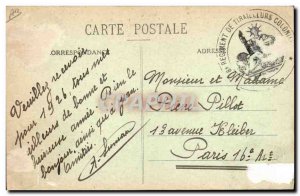 CARTE POSTALE
CORRESPONDANCE
ADRESSE
REGIMENT DE TIRAILLEURS COLONI
Veuillez recevoir
pour 1926, tous mes
meilleurs de bonne et
heureuse année. Bien le
bonjour, ainsi que à
amitiés.
Monsieur et Madame
Pierre Pillot
13 avenue Kléber
Paris 16e